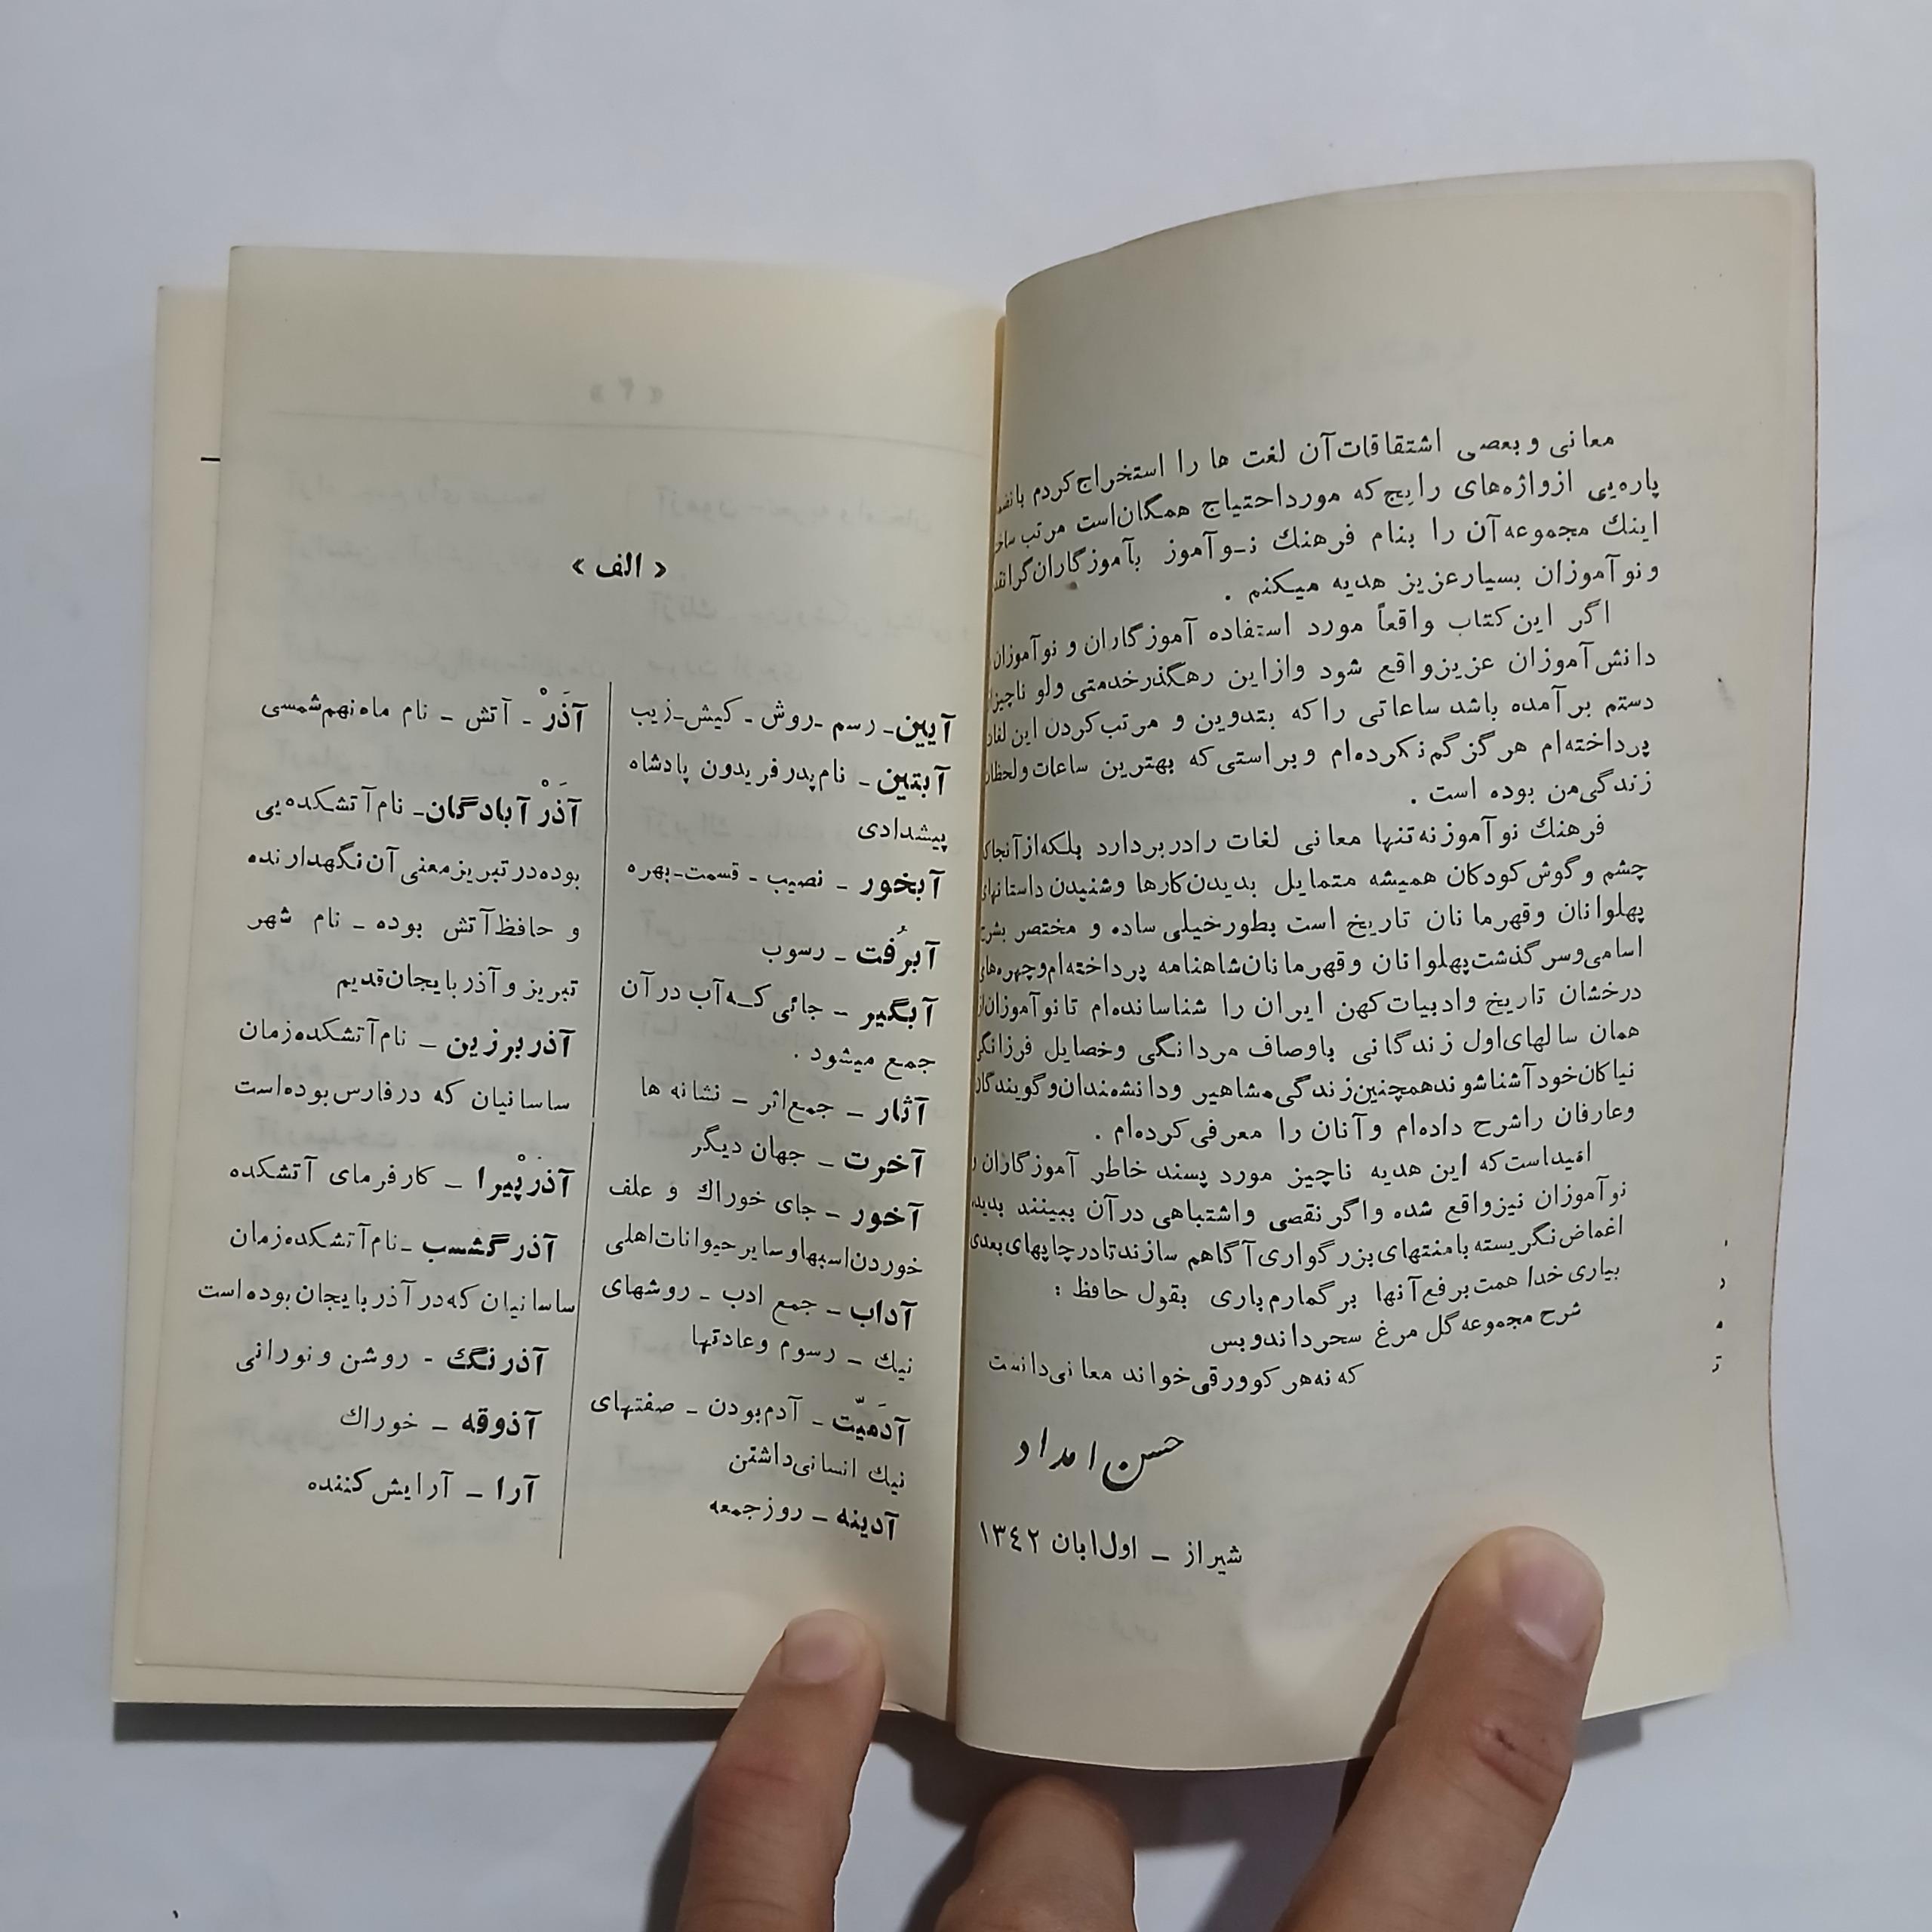 معانی وبعصی اشتقاقات‌آن لغت ها را استخراج‌کردم
پاره‌یی ازواژه‌های رایج‌که مورداحتیاج همگان‌است مرتب
اینك مجموعه‌آن را بنام فرهنك نـوآموز بآموزگاران
ونوآموزان بسیارعزیز هدیه میکنم .
اگر این‌کتاب واقعاً مورد استفاده آموزگاران و نوآموزان
دانش‌آموزان عزیزواقع شود وازاین رهگذرخدمتی ولو
دستم برآمده باشد ساعاتی راکه بتدوین و مرتب‌کردن این
پرداخته‌ام هرگزگم‌نکرده‌ام وبراستی‌که بهترین ساعات
زندگی‌من بوده است .
فرهنك نوآموزنه‌تنها معانی لغات رادربردارد بلکه
چشم و گوش‌کودکان همیشه متمایل بدیدن‌کارها وشنیدن
پهلوانان وقهرمانان تاریخ است بطورخیلی ساده و مختصر بشرح
اسامی‌وسرگذشت‌پهلوانان وقهرمانان‌شاهنامه پرداخته‌ام‌وچهره‌های
درخشان تاریخ وادبیات‌کهن ایران را شناسانده‌ام تانوآموزان
همان سالهای‌اول زندگانی باوصاف مردانگی وخصایل فرزانگی
نیاکان‌خودآشناشوندهمچنین‌زندگی‌مشاهیر ودانشمندان‌وگویندگان
وعارفان راشرح داده‌ام وآنان را معرفی‌کرده‌ام .
امیداست‌که این هدیه ناچیز مورد پسند خاطر آموزگاران و
نوآموزان نیزواقع شده واگرنقصی واشتباهی درآن ببینند بدیده
اغماض‌نگریسته بامنتهای‌بزرگواری‌آگاهم سازندتادرچاپهای‌بعدی
بیاری‌خدا همت‌برفع‌آنها برگمارم‌باری بقول حافظ :
شرح مجموعه‌گل مرغ سحرداندوبس
که نه‌هرکوورقی‌خواند معانی‌دانست
حسن امداد
شیراز ـ اول‌ابان ۱۳٤۲
« الف »
آیین- رسم -روش - کیش-زیب
آبتین - نام‌پدرفریدون پادشاه
پیشدادی
آبخور - نصیب - قسمت-بهره
آبرُفت - رسوب
آبگیر - جائی کـه‌آب درآن
جمع میشود .
آثار - جمع‌اثر - نشانه ها
آخرت - جهان دیگر
آخور - جای خوراك و علف
خوردن‌اسبهاوسایرحیوانات‌اهلی
آداب - جمع ادب - روشهای
نیك - رسوم وعادتها
آدَمیّت - آدم‌بودن - صفتهای
نیك انسانی‌داشتن
آدینه - روزجمعه
آذَرْ - آتش - نام ماه‌نهم‌شمسی
آذَرْآبادگان- نام‌آتشکده‌یی
بوده‌درتبریزمعنی‌آن‌نگهدارنده
و حافظ‌آتش بوده - نام شهر
تبریز وآذربایجان‌قدیم
آذربرزین - نام‌آتشکده‌زمان
ساسانیان که درفارس‌بوده‌است
آذرْپیرا - کارفرمای آتشکده
آذرگشسب -نام‌آتشکده‌زمان
ساسانیان که‌درآذربایجان‌بوده‌است
آذرنگ - روشن ونورانی
آذوقه - خوراك
آرا - آرایش‌کننده